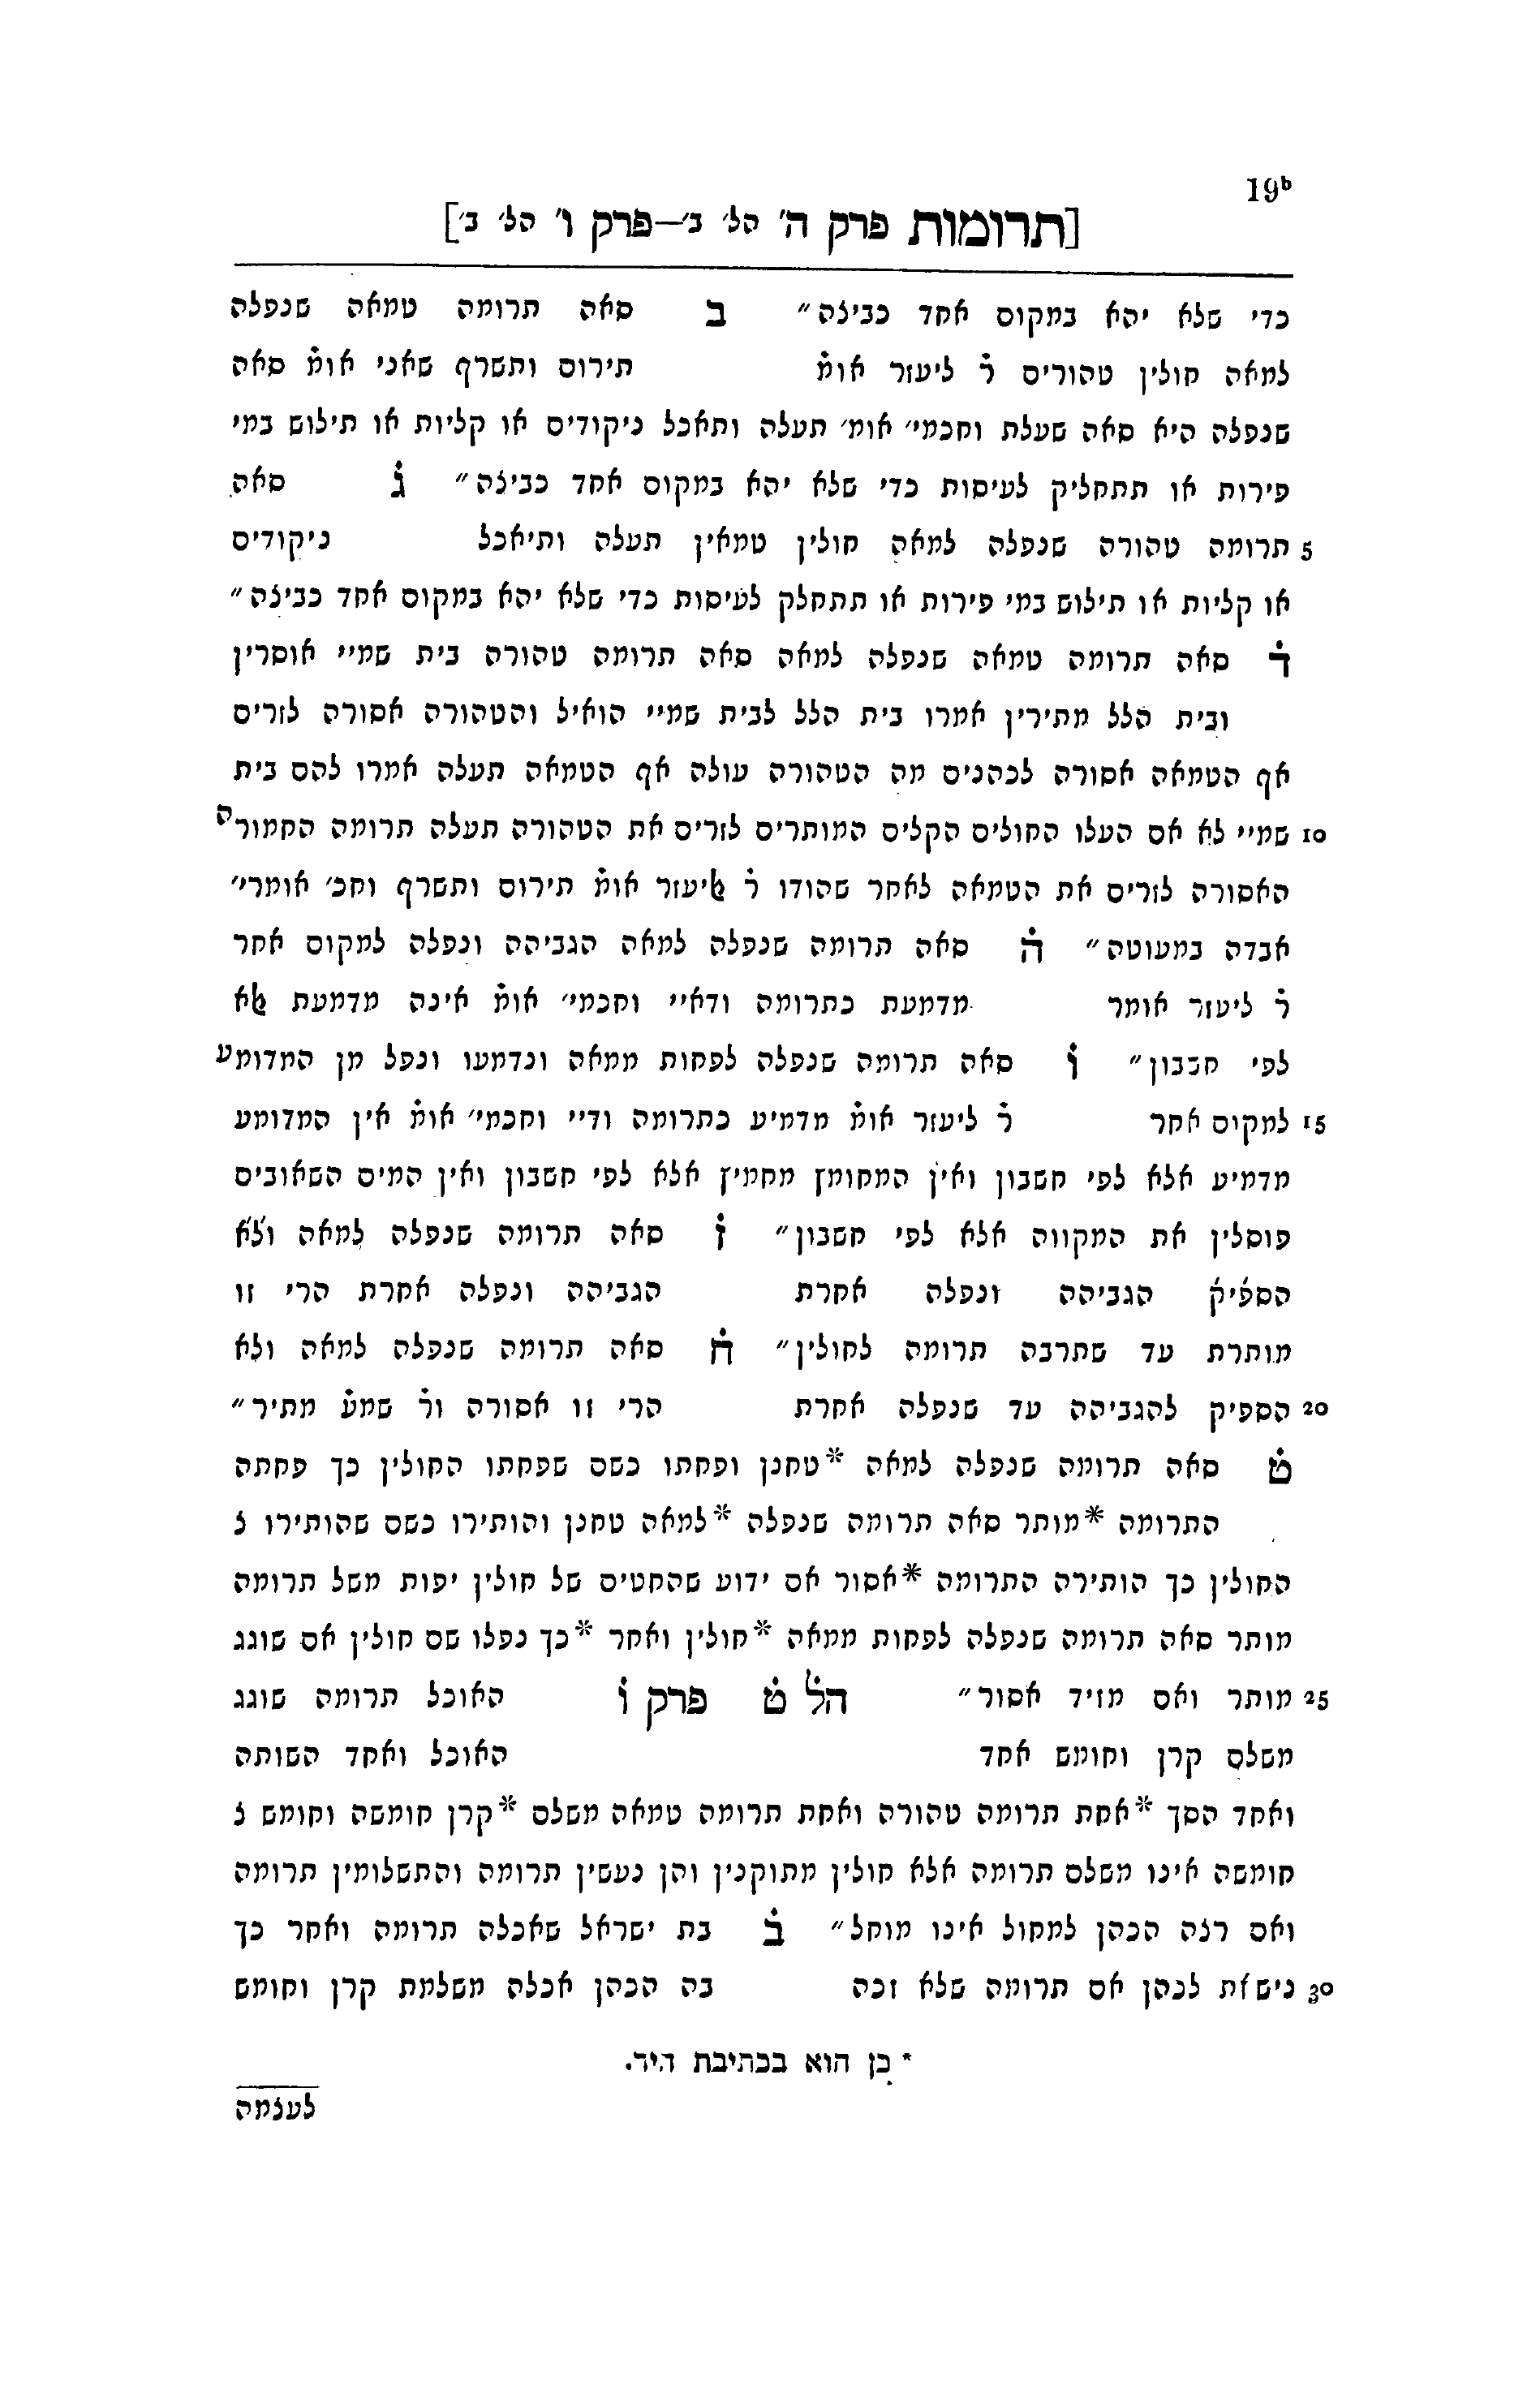 19b
[תרומות פרק ה' הל' ב'—פרק ו' הל' ב']
כדי שלא יהא במקום אחד כביצה״ ב סאה תרומה טמאה שנפלה
למאה חולין טהורים ר̇ ליעזר אומ̇ תירום ותשרף שאני אומ̇ סאה
שנפלה היא סאה שעלת וחכמי׳ אומ׳ תעלה ותאכל ניקודים או קליות או תילוש במי
פירות או תתחליק לעיסות כדי שלא יהא במקום אחד כביצה״ ג̇ סאה
5 תרומה טהורה שנפלה למאה חולין טמאין תעלה ותיאכל ניקודים
או קליות או תילוש במי פירות או תתחלק לעיסות כדי שלא יהא במקום אחד כביצה״
ד̇ סאה תרומה טמאה שנפלה למאה סאה תרומה טהורה בית שמיי אוסרין
ובית הלל מתירין אמרו בית הלל לבית שמיי הואיל והטהורה אסורה לזרים
אף הטמאה אסורה לכהנים מה הטהורה עולה אף הטמאה תעלה אמרו להם בית
10 שמיי לא אם העלו החולים הקלים המותרים לזרים את הטהורה תעלה תרומה החמורה
האסורה לזרים את הטמאה לאחר שהודו ר̇ אליעזר אומ̇ תירום ותשרף וחכ׳ אומרי׳
אבדה במעוטה״ ה̇ סאה תרומה שנפלה למאה הגביהה ונפלה למקום אחר
ר̇ ליעזר אומר מדמעת כתרומה ודאיי וחכמי׳ אומ̇ אינה מדמעת אלא
לפי חשבון״ ו̇ סאה תרומה שנפלה לפחות ממאה ונדמעו ונפל מן המדומע
15 למקום אחר ר̇ ליעזר אומ̇ מדמיע כתרומה ודיי וחכמי׳ אומ̇ אין המדומע
מדמיע אלא לפי חשבון ואין המחומץ מחמיץ אלא לפי חשבון ואין המים השאובים
פוסלין את המקווה אלא לפי חשבון״ ז̇ סאה תרומה שנפלה למאה ולא
הספיק הגביהה ונפלה אחרת הגביהה ונפלה אחרת הרי זו
מותרת עד שתרבה תרומה לחולין״ ח̇ סאה תרומה שנפלה למאה ולא
20 הספיק להגביהה עד שנפלה אחרת הרי זו אסורה ור̇ שמע̇ מתיר״
ט̇ סאה תרומה שנפלה למאה *טחנן ופחתו כשם שפחתו החולין כך פחתה
התרומה *מותר סאה תרומה שנפלה *למאה טחנן והותירו כשם שהותירו ל
החולין כך הותירה התרומה *אסור אם ידוע שהחטים של חולין יפות משל תרומה
מותר סאה תרומה שנפלה לפחות ממאה *חולין ואחר *כך נפלו שם חולין אם שוגג
25 מותר ואם מזיד אסור״ הל̇ ט̇ פרק ו̇ האוכל תרומה שוגג
משלם קרן וחומש אחד האוכל ואחד השותה
ואחד הסך *אחת תרומה טהורה ואחת תרומה טמאה משלם *קרן חומשה וחומש ל
חומשה אינו משלם תרומה אלא חולין מתוקנין והן נעשין תרומה והתשלומין תרומה
ואם רצה הכהן למחול אינו מוחל״ ב̇ בת ישראל שאכלה תרומה ואחר כך
30 נישאת לכהן אם תרומה שלא זכה בה הכהן אכלה משלמת קרן וחומש
* כן הוא בכתיבת היד.
לעצמה